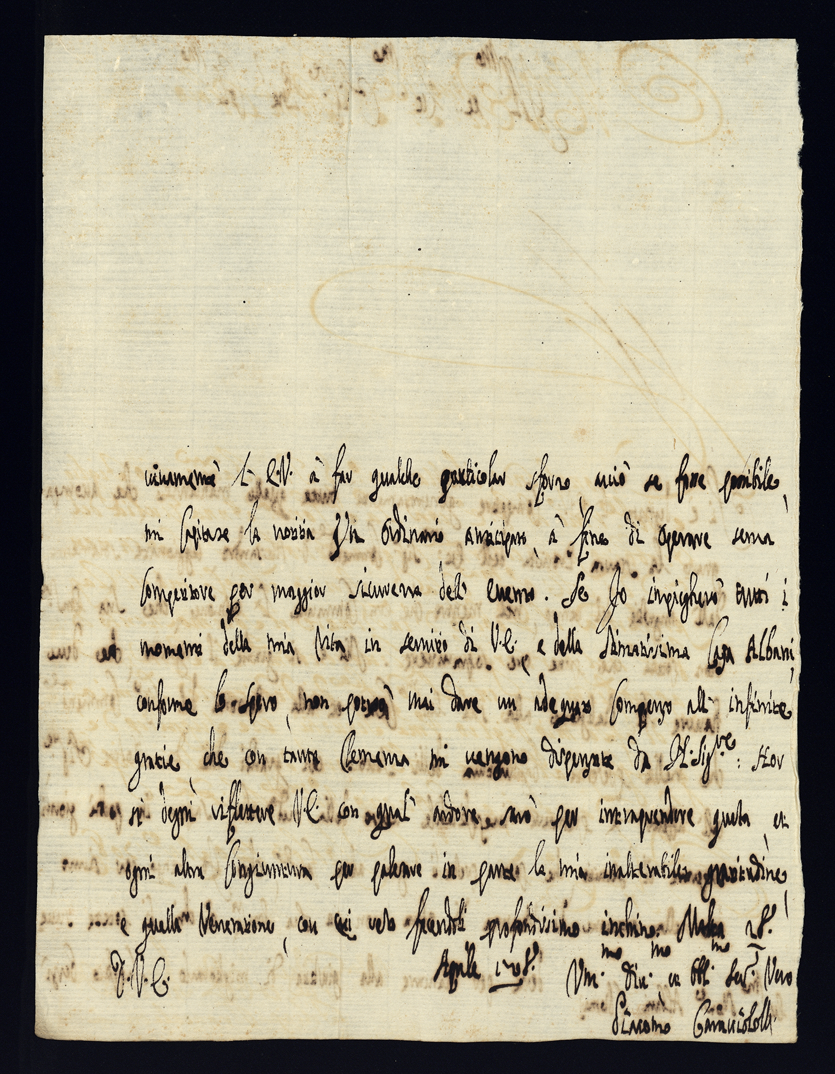 vivamente l'E.V. à far qualche particolar sforzo, acciò se fosse possibile,
mi capitasse la notitia un ordinario anticipato, à fine di operare senza
competitore per maggior sicurezza dell'evento. Se Io impiegherò tutti i
momenti della mia vita in servitio di V.E., e della stimatissima Casa Albani,
conforme lo spero, non potrò mai dare un adeguato compenso all'infinite
gratie, che con tanta clemenza mi vengono dispensate da N. Sig.re: Hor
si degni riflettere V.E. con qual'ardore sarò per intraprendere questa, et
ogni altra congiuntura per palesare in parte la mia inalterabile gratitudine,
e quella Veneratione, con cui resto facendoli profondissimo inchino. Malta 28.
Aprile 1708.
D. V. E.
Um.mo Div.mo et Obl.mo Ser.re Vero
Giacomo Caracciolo